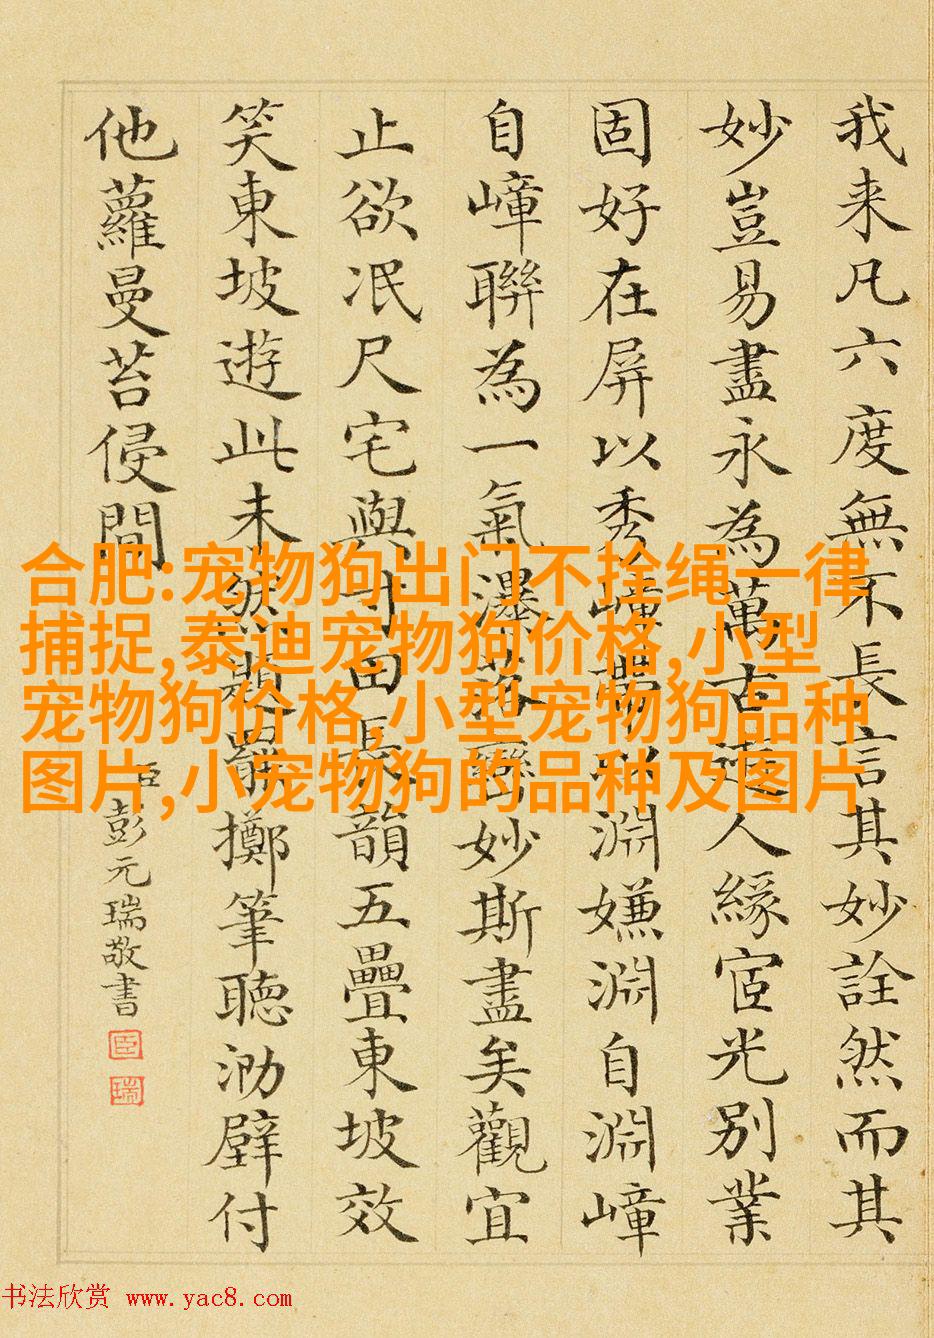 我来凡六度無不長言其妙詮然而其
妙豈易盡永為萬古人緣宧光別業
固好在屏以秀嶂淵嫌淵自淵嶂
自嶂聯為一氣瀑落妙斯盡矣觀宜
止欲冺尺宅與寸田長韻五疊東坡效
笑東坡遊此未然題罷擲筆聽泐壁付
他蘿曼苔侵間
臣彭元瑞敬書
臣
瑞
合肥:宠物狗出门不拴绳一律
捕捉,泰迪宠物狗价格,小型
宠物狗价格,小型宠物狗品种
图片,小宠物狗的品种及图片
书法欣赏 www.yac8.com